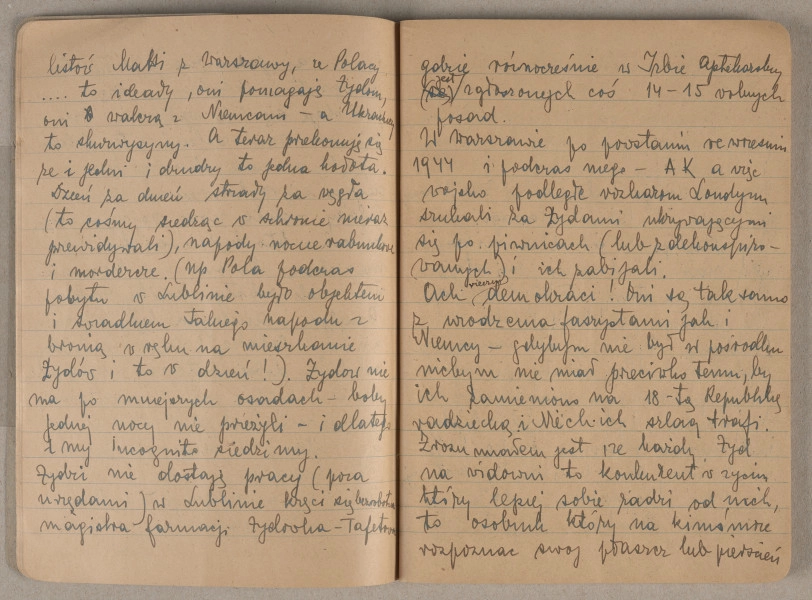 listów Maksi z Warszawy, że Polacy
.... to ideały, oni pomagają Żydom,
oni walczą z Niemcami – a Ukraińcy
to skurwysyny. A teraz przekonuję się
że i jedni i drudzy to jedna hołota.
Dzień za dzień strzały za węgła
(to cośmy siedząc w schronie nieraz
przewidywali), napady nocne rabunkowe
i mordercze. (np Pola podczas
pobytu w Lublinie była objektem
i świadkiem takiego napadu z
bronią w ręku na mieszkanie
Żydów i to w dzień!). Żydów nie
ma po mniejszych osadach – boby
jednej nocy nie przeżyli – i dlatego
i my incognito siedzimy.
Żydzi nie dostają pracy (poza
urzędami) w Lublinie kręci się bezrobotna
magistra farmacji Żydówka –
gdzie równocześnie w Izbie Aptekarskiej
jest zgłoszonych coś 14 – 15 wolnych
posad.
W Warszawie po powstaniu we wrześniu
1944 i podczas niego – AK a więc
wojsko podległe rozkazom Londynu
szukali za Żydami ukrywającymi
się po piwnicach (lub zdekonspiro-
wanych) i ich zabijali.
Ach demokraci! Oni są tak samo
z urodzenia faszystami jak i
Niemcy – gdybym nie był w pośrodku
nichbym nie miał przeciwko temu, by
ich zamieniono na 18-tą Republikę
radziecką i Niech ich szlag trafi.
Zrozumiałem jest, że każdy Żyd
na widowni to konkurent w życiu,
który lepiej sobie radzi od nich,
to osobnik który na kimś może
rozpoznać swój płaszcz lub pierścień